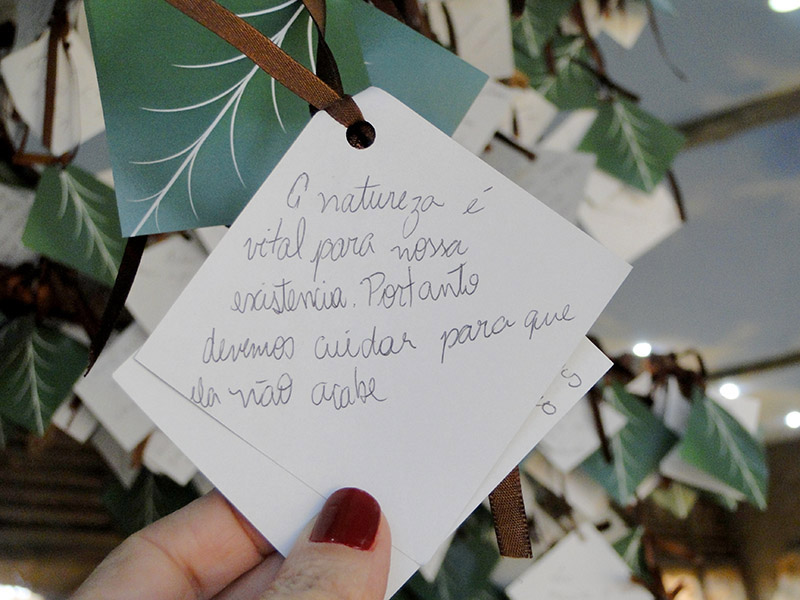 A natureza é
vital para nossa
existencia. Portanto
devemos cuidar para que
ela não acabe